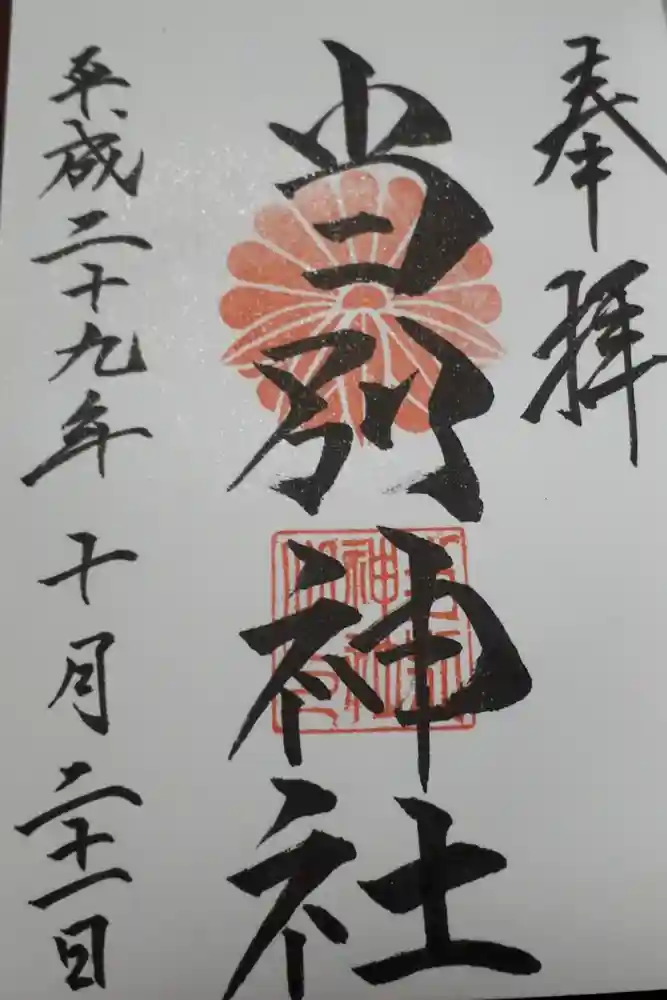 奉拝
当別神社
平成二十九年十月二十一日